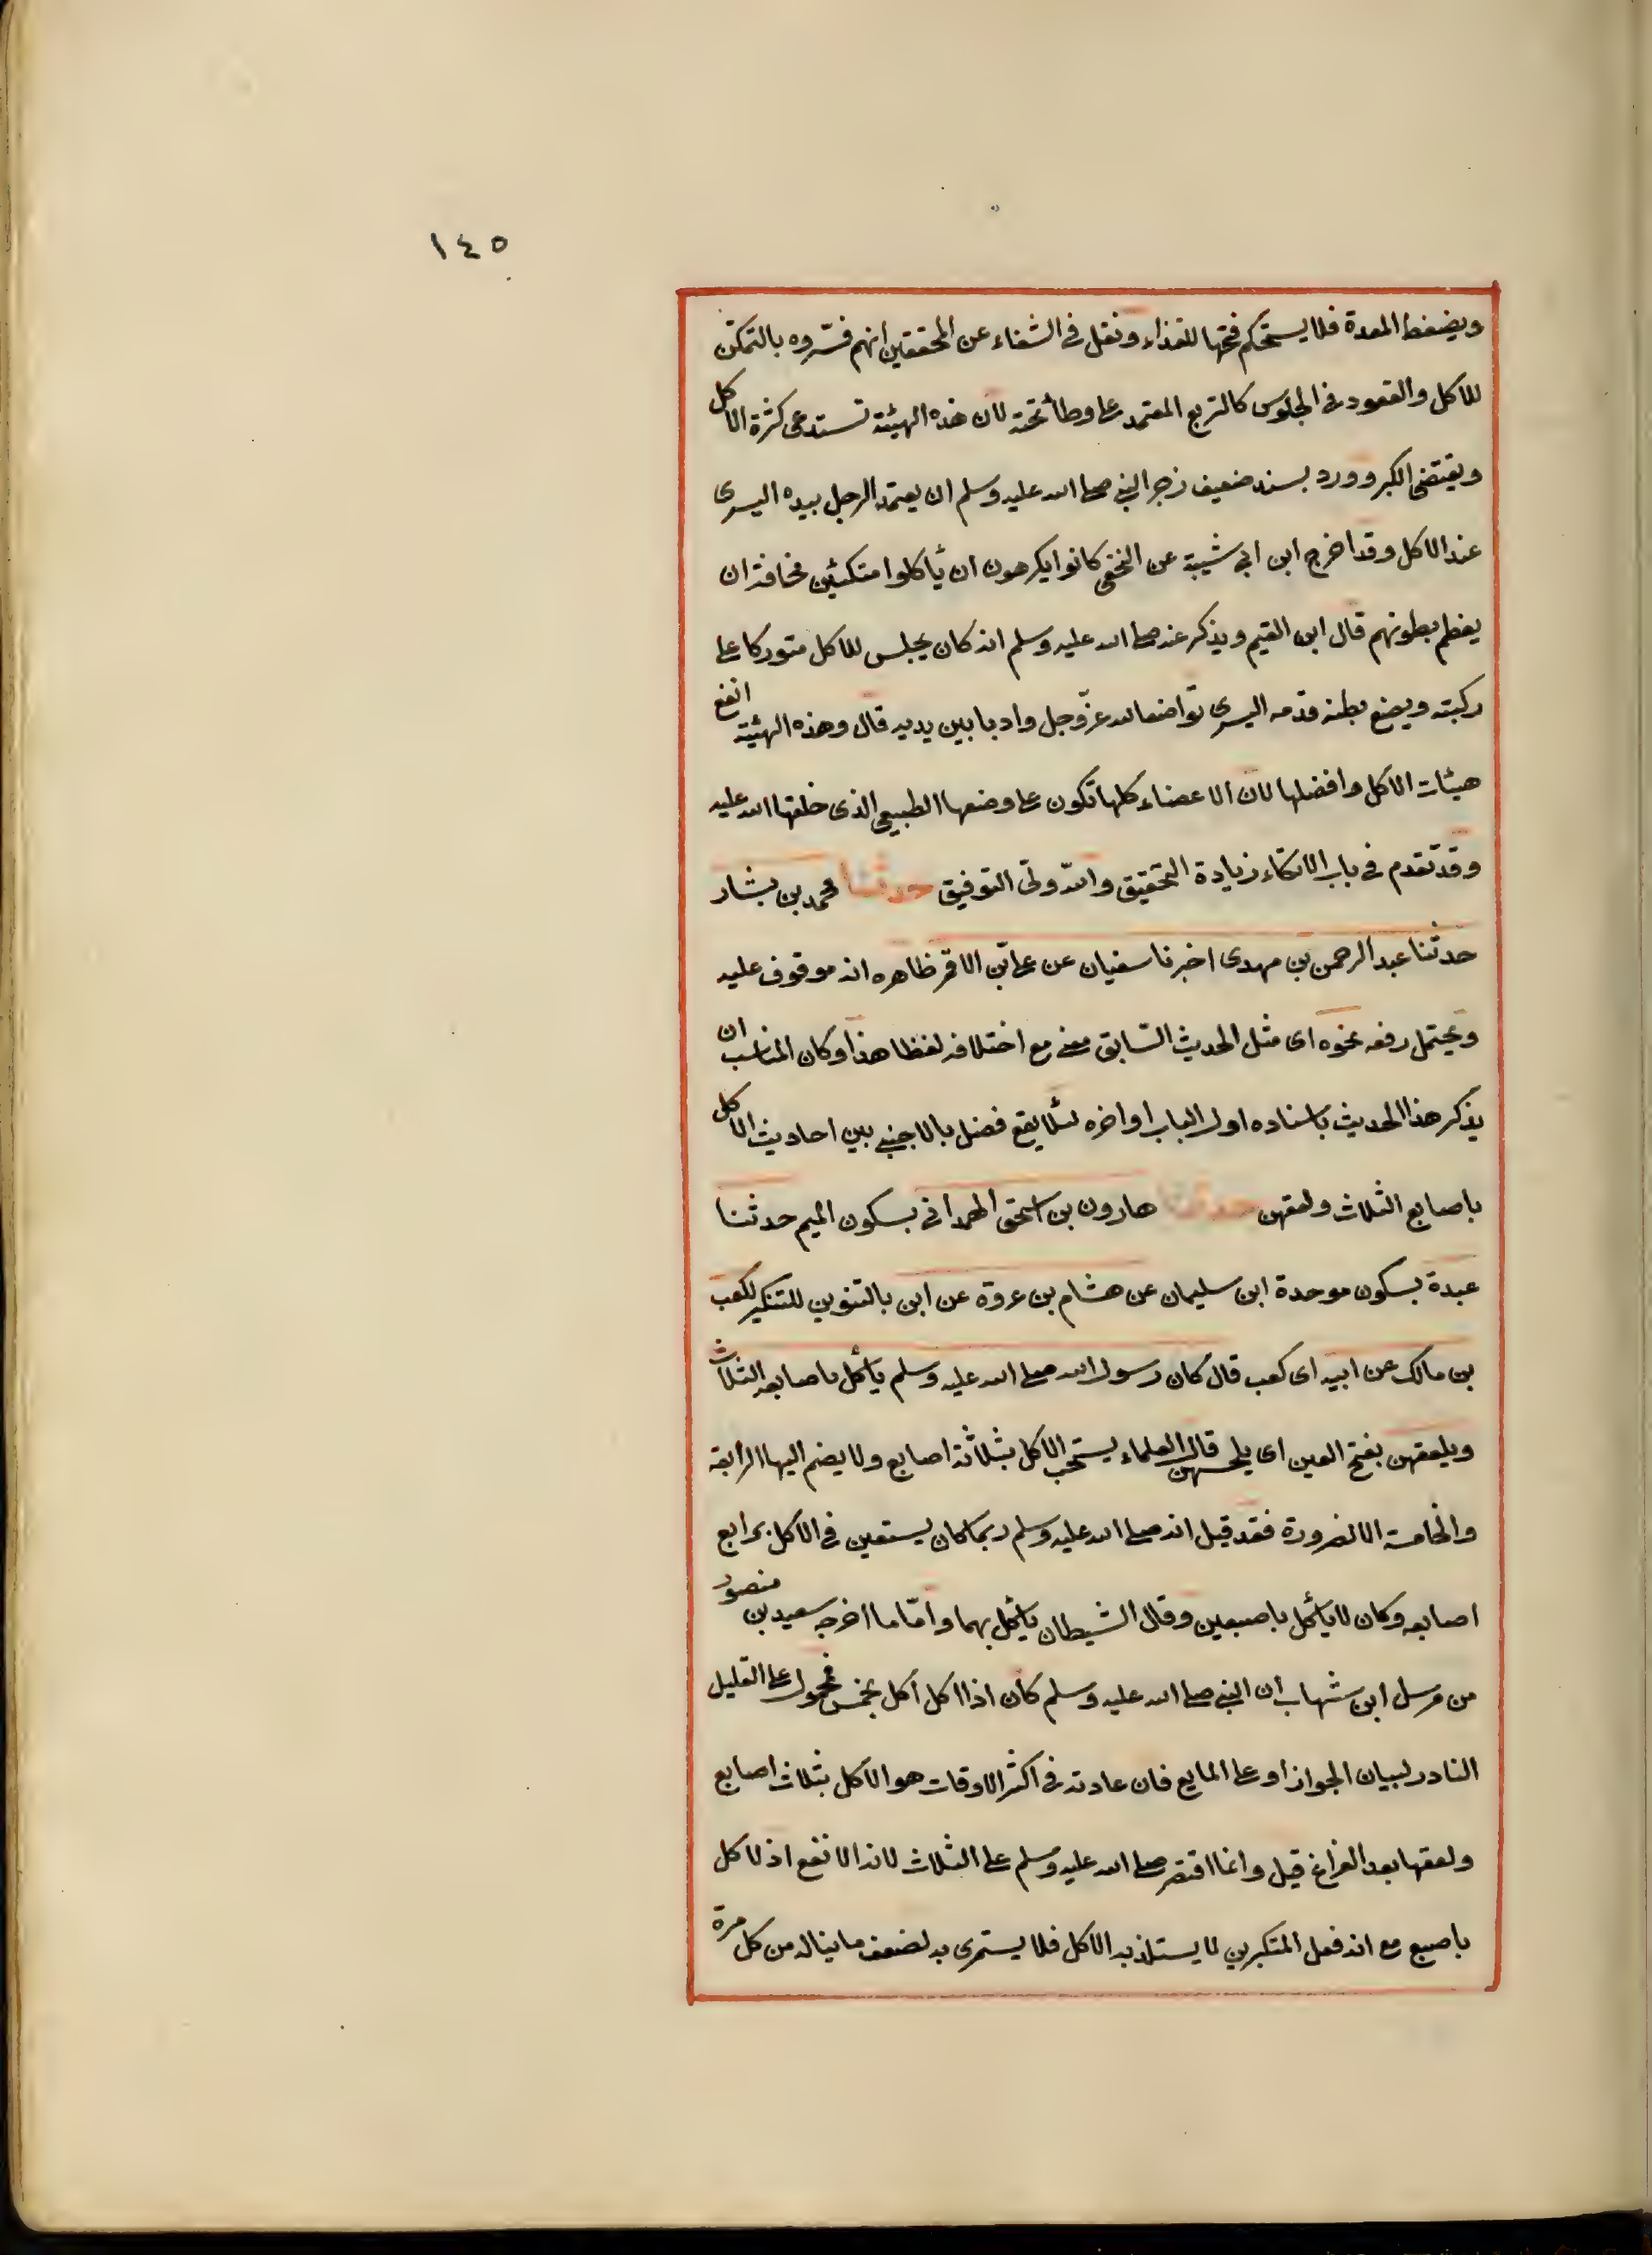 ١٤٥
ويضغط المعدة فلا يستحكم فتحها للغذاء ونقل فى الشفاء عن المحققين انهم فسّروه بالتمكن
للاكل والقعود فى الجلوس كالتربع المعتمد على وطأ تحته لان هذه الهيئة تستدعى كثرة الاكل
ويقتضى الكبر وورد بسند ضعيف زجر النبى صلى الله عليه وسلم ان يعتمد الرجل بيده اليسرى
عند الاكل وقد اخرج ابن ابى شيبة عن النخعى كانوا يكرهون ان يأكلوا متكئين مخافة ان
يعظم بطونهم قال ابن القيم ويذكر عنه صلى الله عليه وسلم انه كان يجلس للاكل متوركا على
ركبته ويضع بطنه قدمه اليسرى تواضعا لله عزّ وجل وادبا بين يديه قال وهذه الهيئة انفع
هيئات الاكل وافضلها لان الاعضاء كلها تكون على وضعها الطبيعى الذى خلقها الله عليه
وقد تقدم فى باب الاتكاء زيادة التحقيق والله ولى التوفيق حدثنا محمد بن بشار
حدثنا عبد الرحمن بن مهدى اخبرنا سفيان عن على بن الاقر ظاهره انه موقوف عليه
ويحتمل رفعه نحوه اى مثل الحديث السّابق معنى مع اختلافه لفظا هذا وكان المناسب ان
يذكر هذا الحديث باسناده اول الباب او اخره لئلا يقع فضل بالاجنبى بين احاديث الاكل
باصابع الثلاث ولعقهن حدثنا هارون بن اسحق الهمدانى بسكون الميم حدثنا
عبدة بسكون موحدة ابن سليمان عن هشام بن عروة عن ابن بالتنوين للتنكير لكعب
بن مالك عن ابيه اى كعب قال كان رسول الله صلى الله عليه وسلم يأكل باصابعه الثلاث
ويلعقهن بفتح العين اى يلحسهن قال العلماء يستحب الاكل بثلاثة اصابع ولا يضم اليها الرابعة
والخامسة الا لضرورة فقد قيل انه صلى الله عليه وسلم ربما كان يستعين فى الاكل برابع
اصابعه وكان لا يأكل باصبعين وقال الشيطان يأكل بهما وامّا ما اخرجه سعيد بن منصور
من مرسل ابن شهاب ان النبى صلى الله عليه وسلم كان اذا اكل اكل بخمس فمحمول على القليل
النادر لبيان الجواز او على المايع فان عادته فى اكثر الاوقات هو الاكل بثلاث اصابع
ولعقها بعد الفراغ قيل وانما اقتصر صلى الله عليه وسلم على الثلاث لانه الانفع اذ الاكل
باصبع مع انه فعل المتكبرين لا يستلذ به الاكل فلا يستمرى به لضعف ما يناله من كل مرة